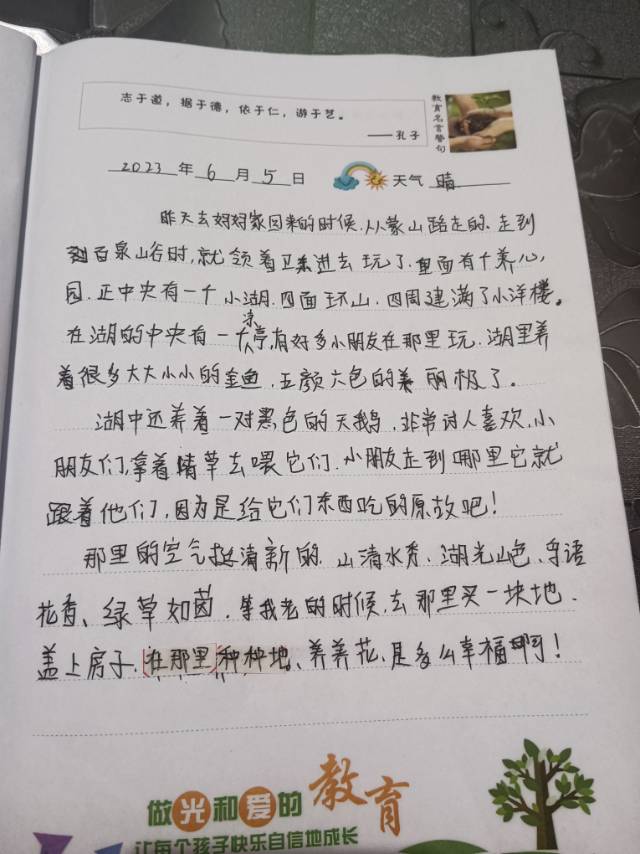 志于道，据于德，依于仁，游于艺。
——孔子
教育名言警句
2023 年 6 月 5 日 天气 晴
昨天去好好家回来的时候.从蒙山路走的.走到
到百泉山谷时,就领着卫东进去玩了.里面有个养心,
园.正中央有一个小湖.四面环山.四周建满了小洋楼。
在湖的中央有一个凉亭,有好多小朋友在那里玩.湖里养
着很多大大小小的金鱼.五颜六色的美丽极了。
湖中还养着一对黑色的天鹅,非常讨人喜欢.小
朋友们拿着青草去喂它们.小朋友走到哪里它就
跟着他们,因为是给它们东西吃的原故吧!
那里的空气挺清新的.山清水秀、湖光山色、鸟语
花香、绿草如茵.等我老的时候.去那里买一块地.
盖上房子.在那里种种地、养养花.是多么幸福啊!
做光和爱的教育
让每个孩子快乐自信地成长